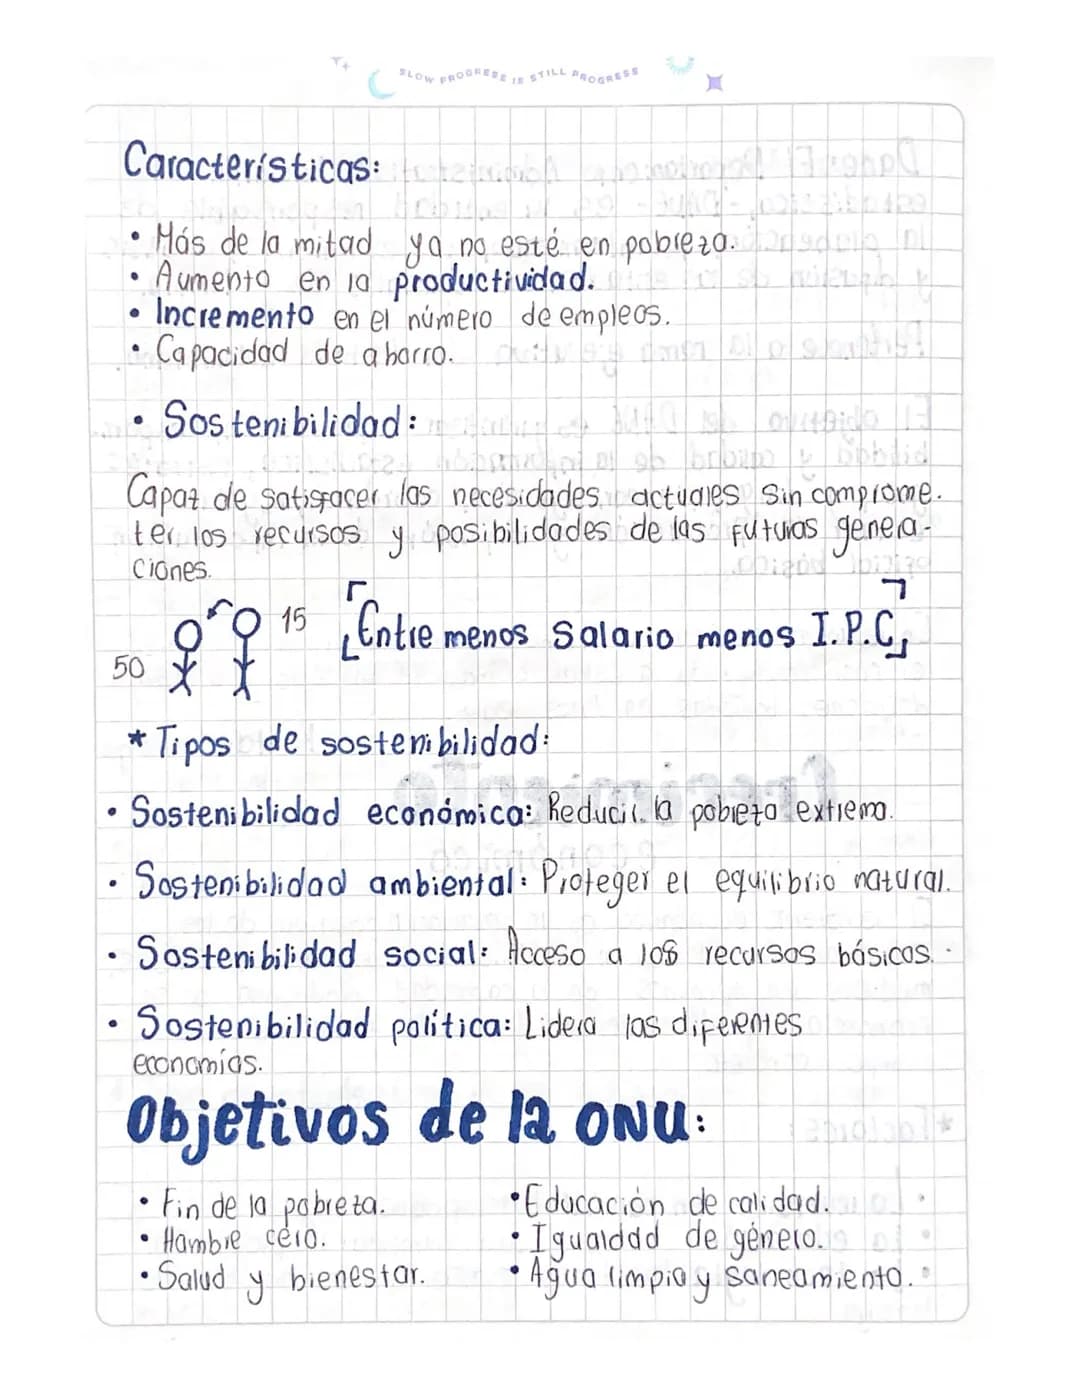 SLOW PROGRESS IS STILL PROGRESS
Características:
• Más de la mitad ya no esté en pobreza.
• Aumento en la productividad.
• Incremento en el número de empleos.
• Capacidad de ahorro.
• Sostenibilidad:
Capaz de satisfacer las necesidades actuales sin comprome-
ter los recursos y posibilidades de las futuras genera-
ciones.
50 15 [Entre menos Salario menos I.P.C]
* Tipos de sostenibilidad:
• Sostenibilidad económica: Reducir la pobreza extrema.
• Sostenibilidad ambiental: Proteger el equilibrio natural.
• Sostenibilidad social: Acceso a los recursos básicos.
• Sostenibilidad política: Lidera las diferentes
economías.
Objetivos de la ONU:
• Fin de la pobreza.
• Hambre cero.
• Salud y bienestar.
• Educación de calidad.
• Igualdad de género.
• Agua limpia y saneamiento.